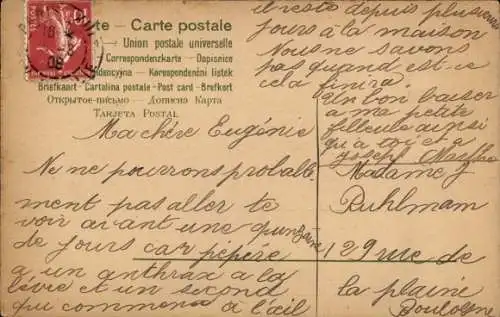 te – Carte postale
Union postale universelle
Correspondenzkarte – Dopisnice
Korespondenční lístek
Briefkaart – Cartolina postale – Post card – Brefkort
Открытое письмо – Дописна Карта
TARJETA POSTAL
Ma chère Eugénie
Ne ne pourrons probable
ment pas aller te
voir avant une quinzaine
de jours car pépère
a un anthrax a la
lèvre et un second
qui commence à l'œil
il reste depuis plusieurs
jours à la maison
Nous ne savons
pas quand est-ce
cela finira.
Un bon baiser
a ma petite
filleule ainsi
qu'a toi et a
Joseph
Madame J
Ruhlmam
129 rue de
la plaine
Boulogne